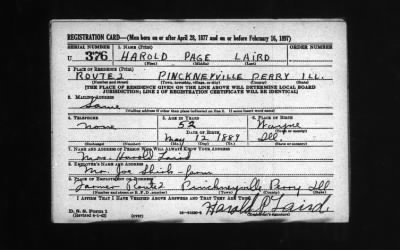 REGISTRATION CARD—(Men born on or after April 28, 1877 and on or before February 16, 1897)
SERIAL NUMBER 1. NAME (Print)
U 376 HAROLD PAGE LAIRD
(First) (Middle) (Last)
2. PLACE OF RESIDENCE (Print)
ROUTE 2 PINCKNEYVILLE PERRY ILL.
(Number and street) (Town, township, village, or city) (County) (State)
[THE PLACE OF RESIDENCE GIVEN ON THE LINE ABOVE WILL DETERMINE LOCAL BOARD
JURISDICTION; LINE 2 OF REGISTRATION CERTIFICATE WILL BE IDENTICAL]
3. MAILING ADDRESS
Same
(Mailing address if other than place indicated on line 2. If same insert word same)
4. TELEPHONE 5. AGE IN YEARS 6. PLACE OF BIRTH
None 52 Wayne
DATE OF BIRTH (Town or county)
May 12 1889 Ill
(Exchange) (Number) (Mo.) (Day) (Yr.) (State or country)
7. NAME AND ADDRESS OF PERSON WHO WILL ALWAYS KNOW YOUR ADDRESS
Mrs. Harold Laird
8. EMPLOYER'S NAME AND ADDRESS
Mr. Joe
9. PLACE OF EMPLOYMENT OR BUSINESS
Farmer Route 2 Pinckneyville Perry Ill
(Number and street or R. F. D. number) (Town) (County) (State)
I AFFIRM THAT I HAVE VERIFIED ABOVE ANSWERS AND THAT THEY ARE TRUE.
D. S. S. Form 1
(Revised 4-1-42) Harold P Laird